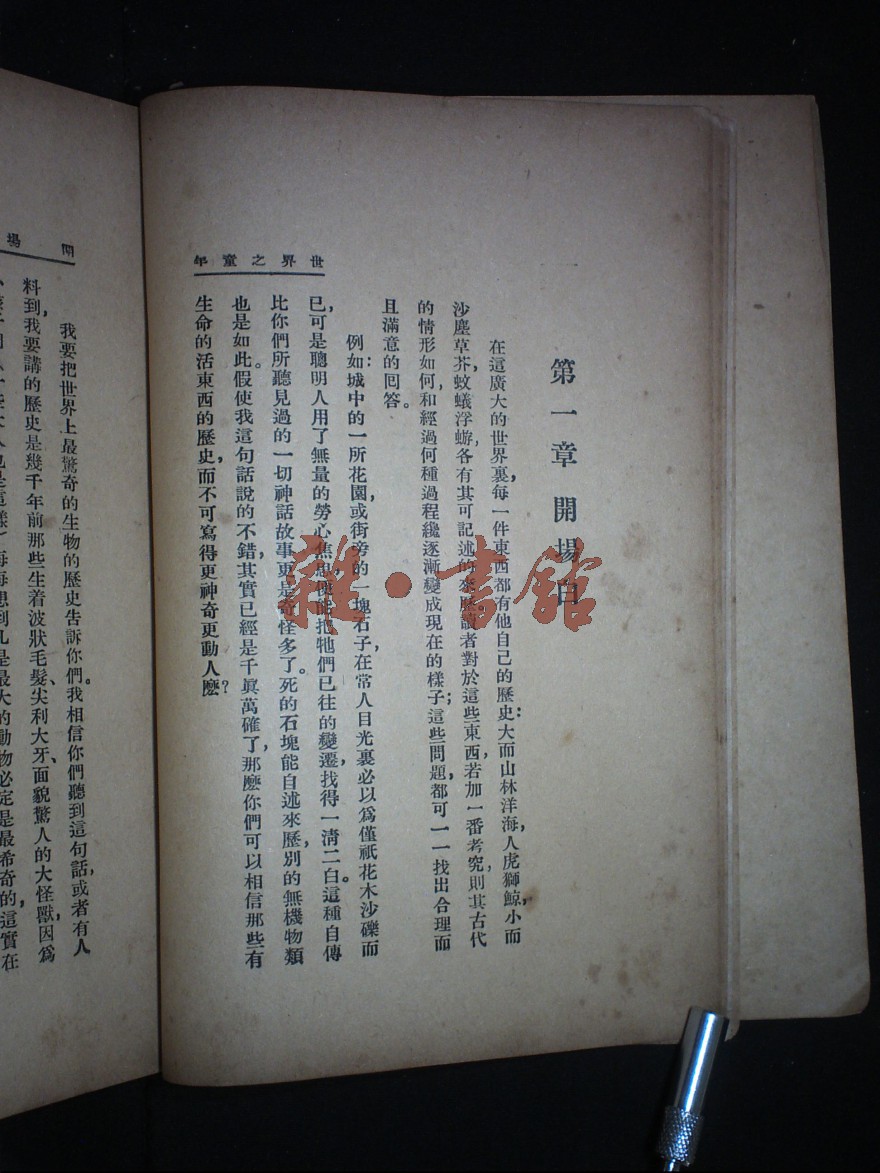 世界之童年
第一章 開場白
在這廣大的世界裏，每一件東西都有他自己的歷史：大而山林洋海，人虎獅鯨，小而
沙塵草芥，蚊蟻浮蝣，各有其可記述的來歷。讀者對於這些東西，若加一番考究，則其古代
的情形如何，和經過何種過程纔逐漸變成現在的樣子；這些問題，都可一一找出合理而
且滿意的回答。
例如：城中的一所花園，或街旁的一塊石子，在常人目光裏必以爲僅祇花木沙礫而
已，可是聰明人用了無量的勞心焦思，便能把牠們已往的變遷，找得一清二白。這種自傳
比你們所聽見過的一切神話故事更是奇怪多了。死的石塊能自述來歷，別的無機物類
也是如此。假使我這句話說的不錯，其實已經是千眞萬確了，那麼你們可以相信那些有
生命的活東西的歷史，而不可寫得更神奇更動人麽？
開場
我要把世界上最驚奇的生物的歷史告訴你們。我相信你們聽到這句話，或者有人
料到我要講的歷史是幾千年前那些生着波狀毛髮、尖利大牙、面貌驚人的大怪獸，因爲
也是這樣）每每想到凡是最大的動物必定是最希奇的，這實在
雜·書館